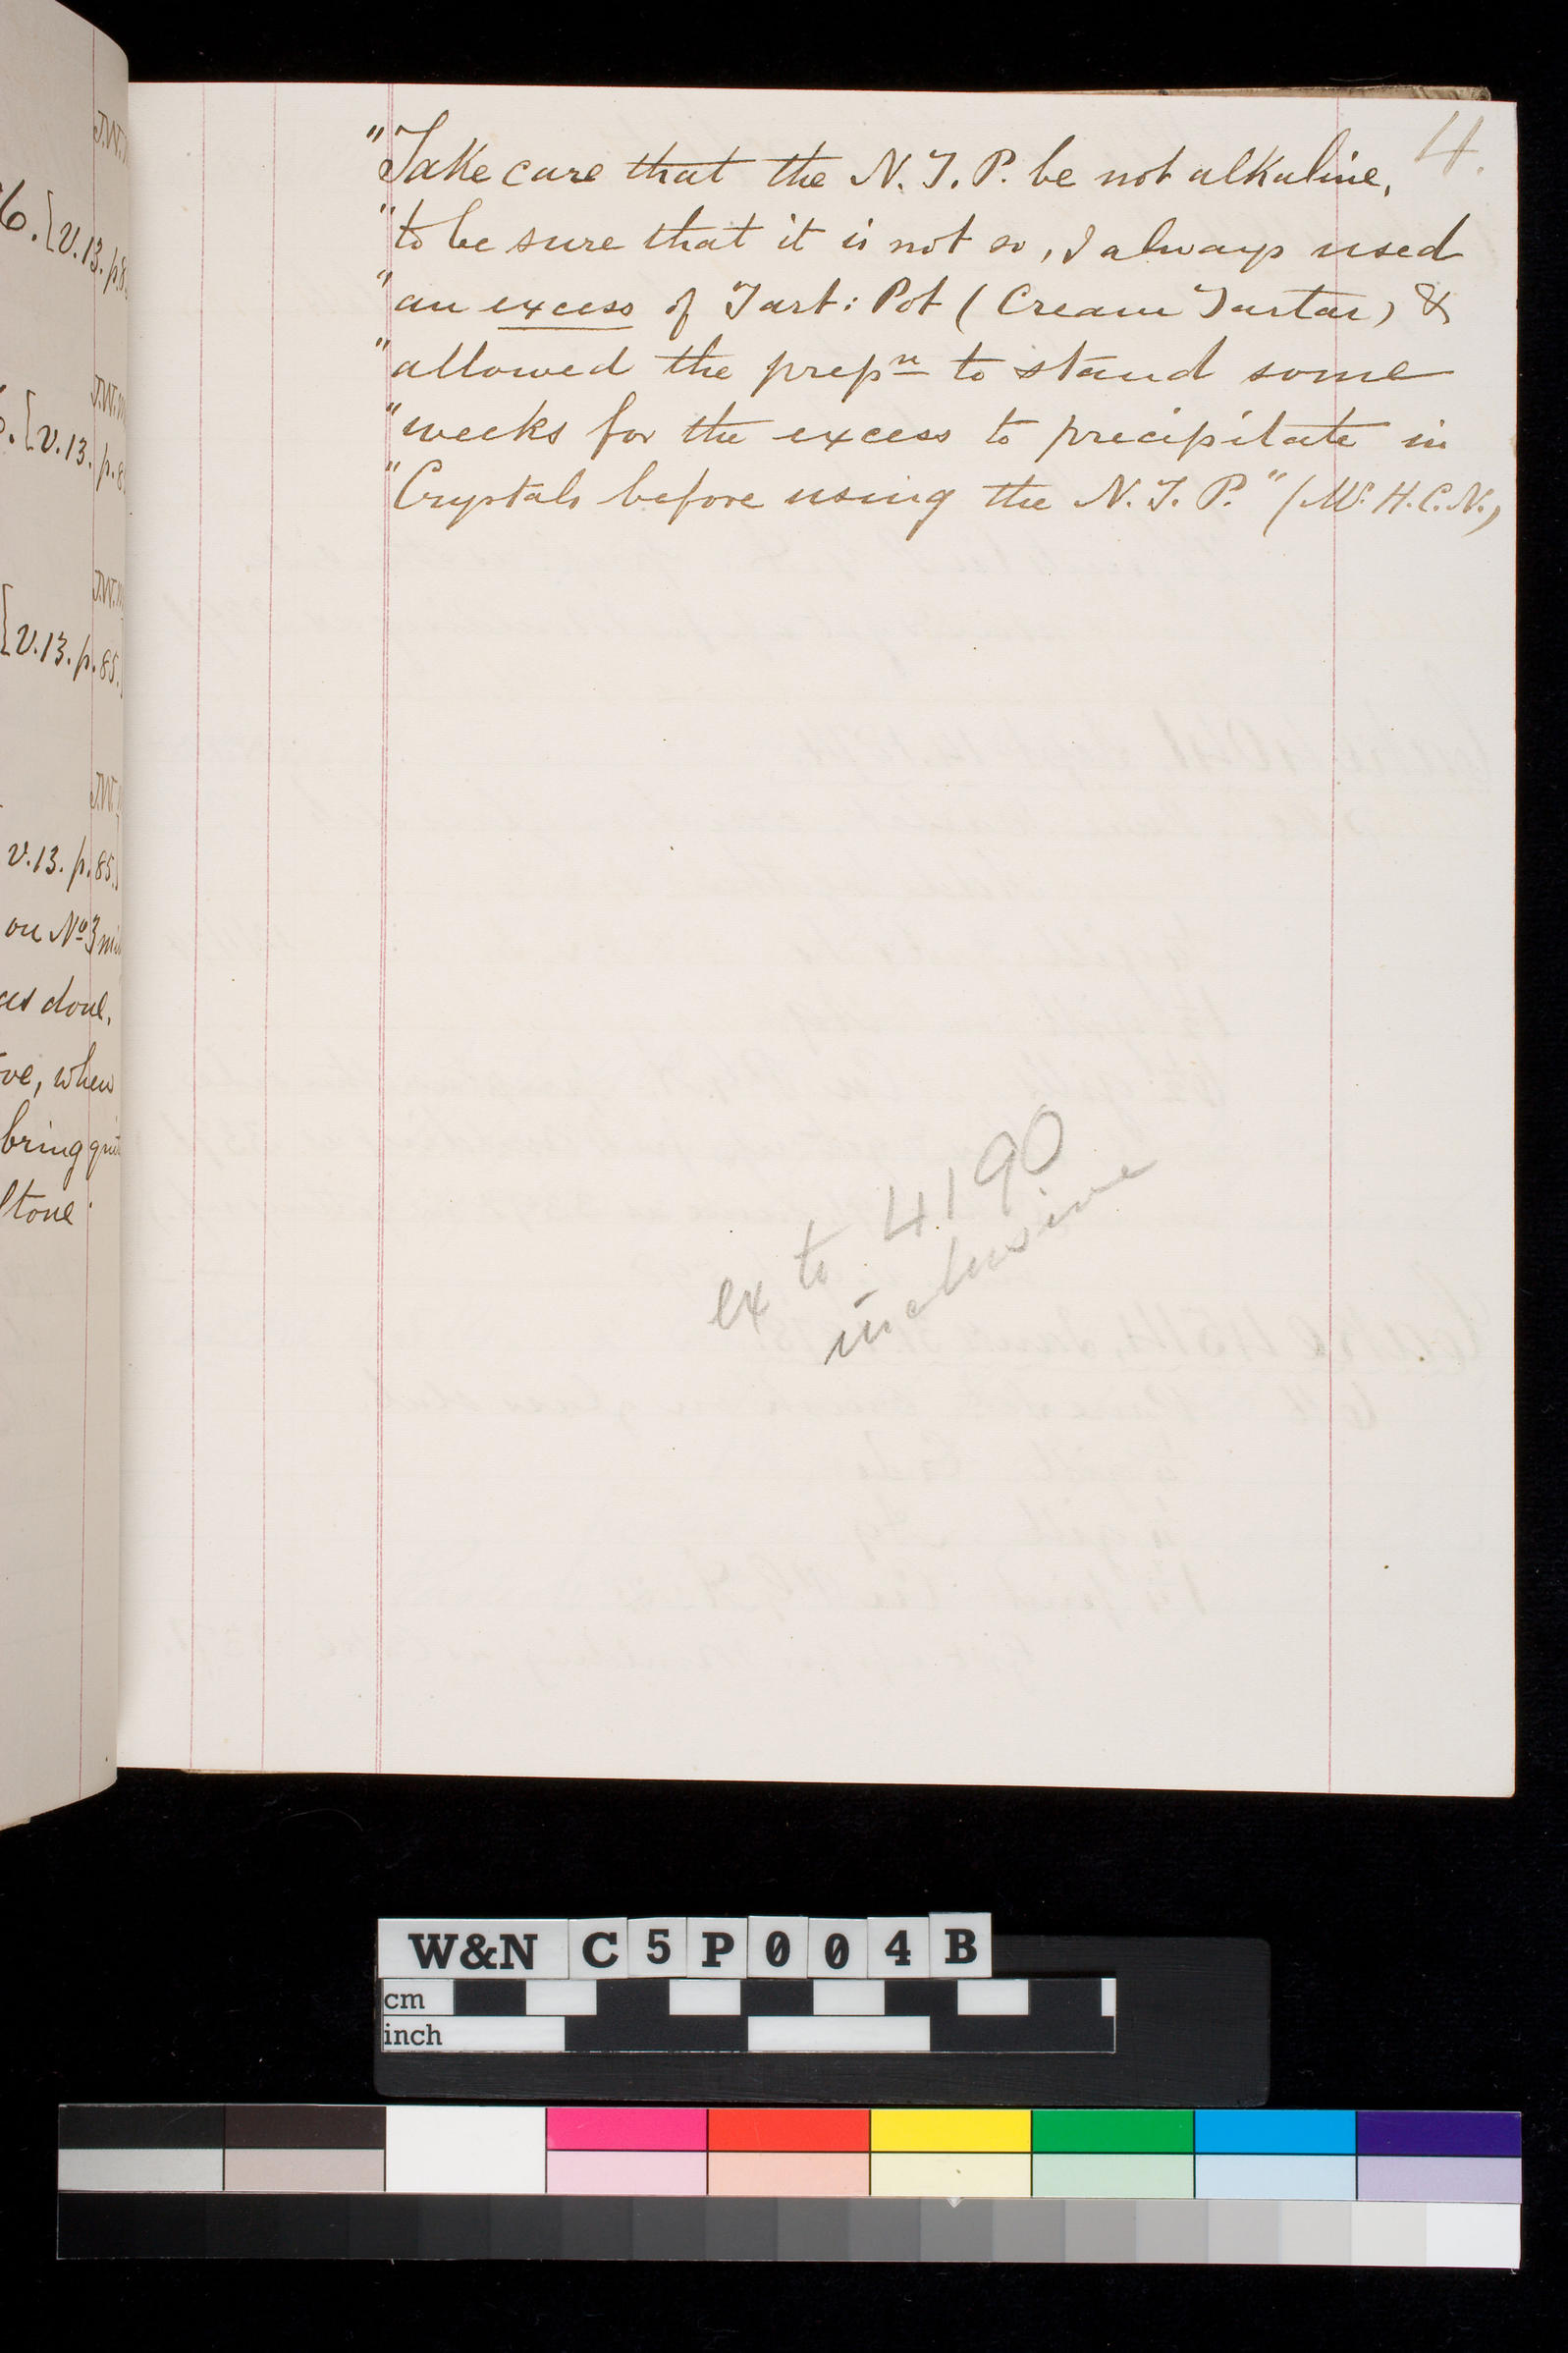 J.W.
76. [v.13. p.8
J.W.
[v.13. p.8
J.W.
[v.13. p.85.]
J.W.
v.13. p.85.]
on No 3
done,
, when
bring
tone
4.
"Take care that the N.T.P. be not alkaline,
"to be sure that it is not so, I always used
"an excess of Tart: Pot (Cream Tartar) &
"allowed the prepn to stand some
"weeks for the excess to precipitate in
"Crystals before using the N.T.P." (Mr. H.C.N.)
ex to 4190
inclusive
W&N C5P004B
cm
inch